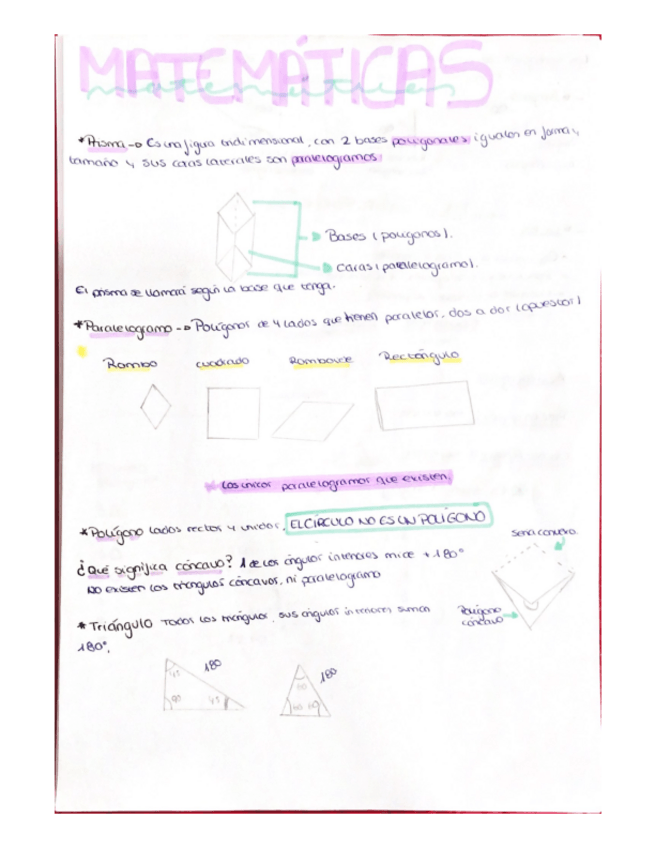 MATEMÁTICAS
matemáticas
*Prisma → Es una figura tridimensional, con 2 bases poligonales iguales en forma y
tamaño y sus caras laterales son paralelogramos.
Bases (polígonos).
Caras (paralelogramo).
El prisma se llamará según la base que tenga.
*Paralelogramo → Polígonos de 4 lados que tienen paralelos, dos a dos (opuestos)
Rombo cuadrado Romboide Rectángulo
Los únicos paralelogramos que existen
*Polígono lados rectos y unidos. EL CÍRCULO NO ES UN POLÍGONO
sería convexa
¿Qué significa cóncavo? 1 de los ángulos interiores mide +180°
NO existen los triángulos cóncavos, ni paralelogramo
Polígono
cóncavo
*Triángulo Todos los triángulos, sus ángulos interiores suman
180°.
45 180
90 45
60 180
60 60